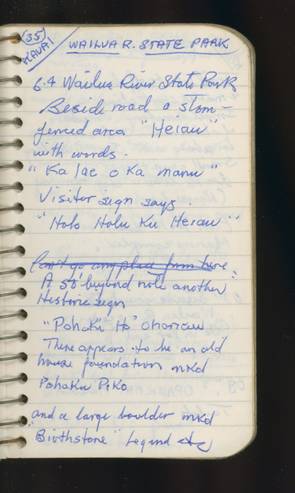 35
KAUAI
WAILUA R. STATE PARK
6.4 Wailua River State Park
Beside road a stone-
fenced area "Heiau"
with words.
"Ka lae o Ka manu"
Visitor sign says
"Holo Holu Ku Heiau"
Can't go any place from here.
A 50' beyond note another
Historic sign
"Pohaku Ho' ohanau
There appears to be an old
house foundation mkd
Pohaku Piko
and a large boulder mkd
"Birthstone" Legend